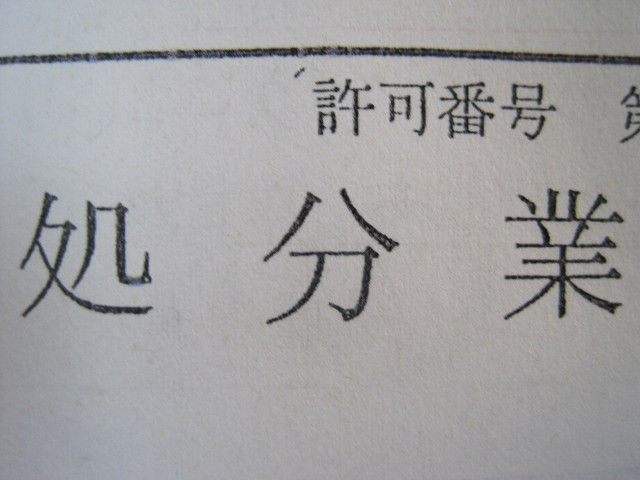 許可番号 第
処分業